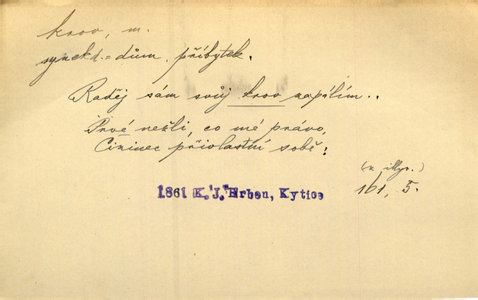 krov, m.
synekd. = dům, příbytek.
Raděj sám svůj krov napálím..
Prvé nežli, co mé právo,
Cizinec přivlastní sobě:
(z illyr.)
161, 5.
1861 K.J. Erben, Kytice